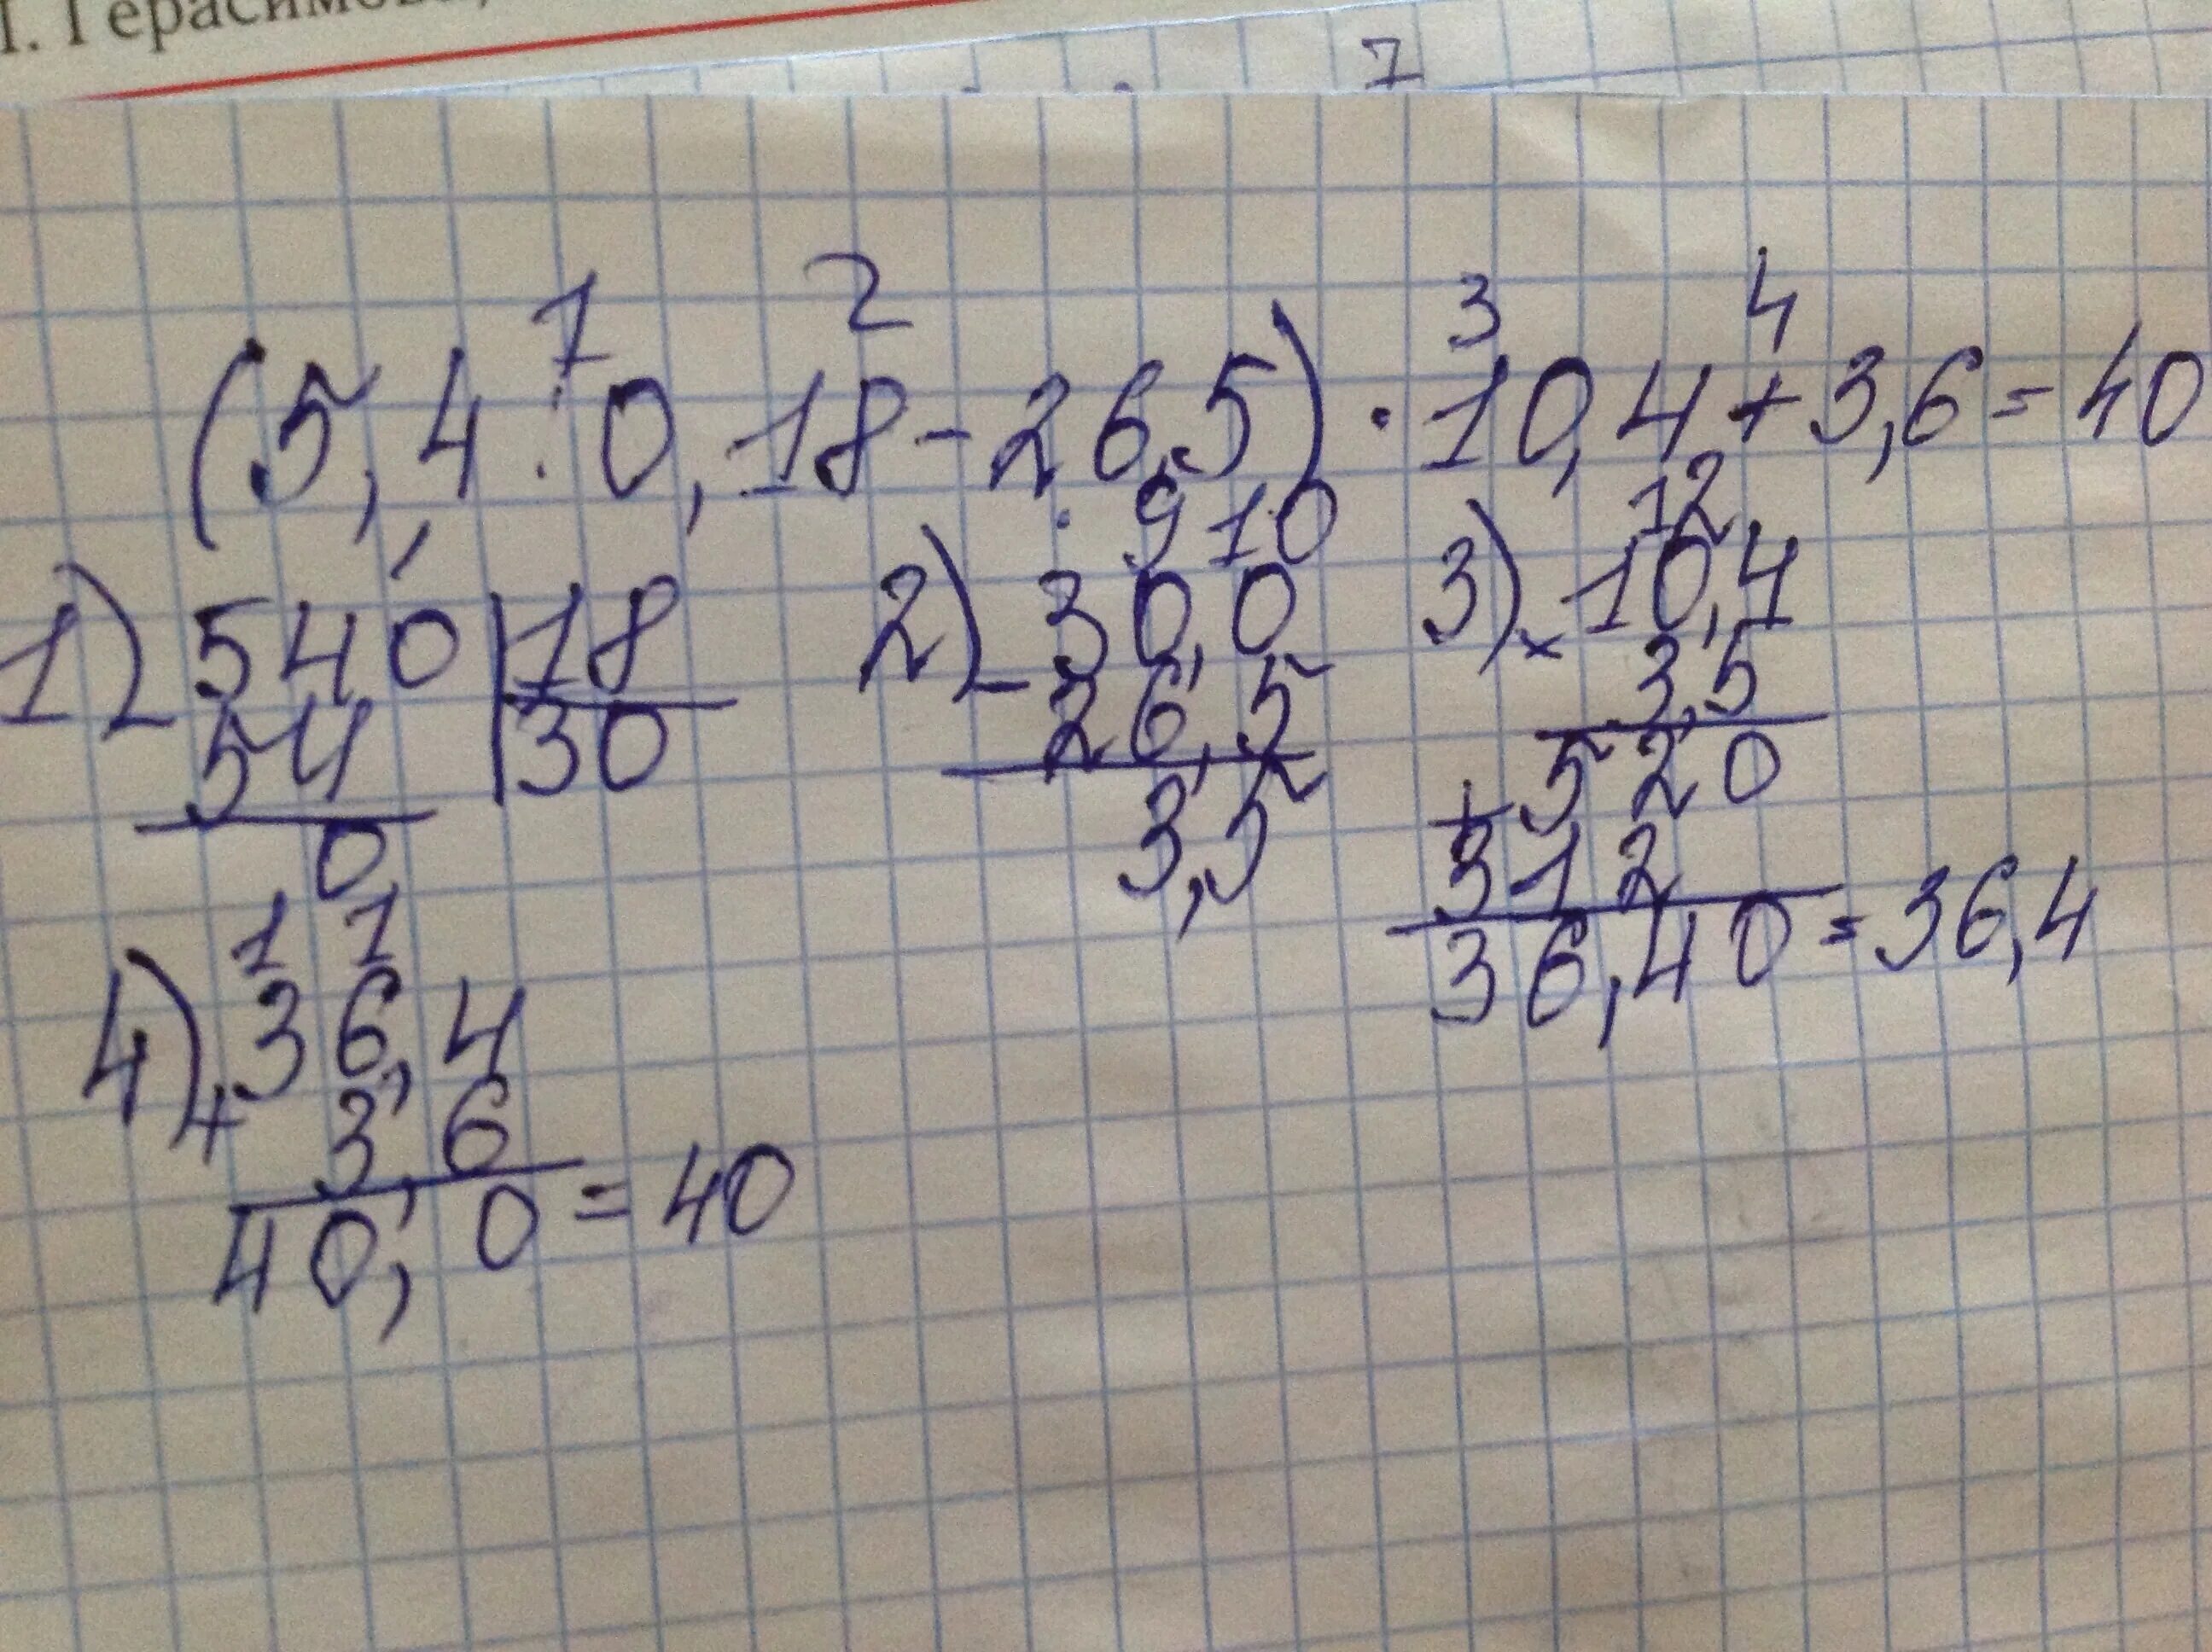 І. Герасимова,
7
1 2 3 4
(5,4:0,18-26,5)·10,4+3,6=40
1) 540 | 18
54 | 30
0
2) . 9 10
- 30,0
26,5
3,5
3) 12
× 10,4
3,5
+ 520
312
36,40 = 36,4
4) 1 1
+ 36,4
3,6
40,0 = 40